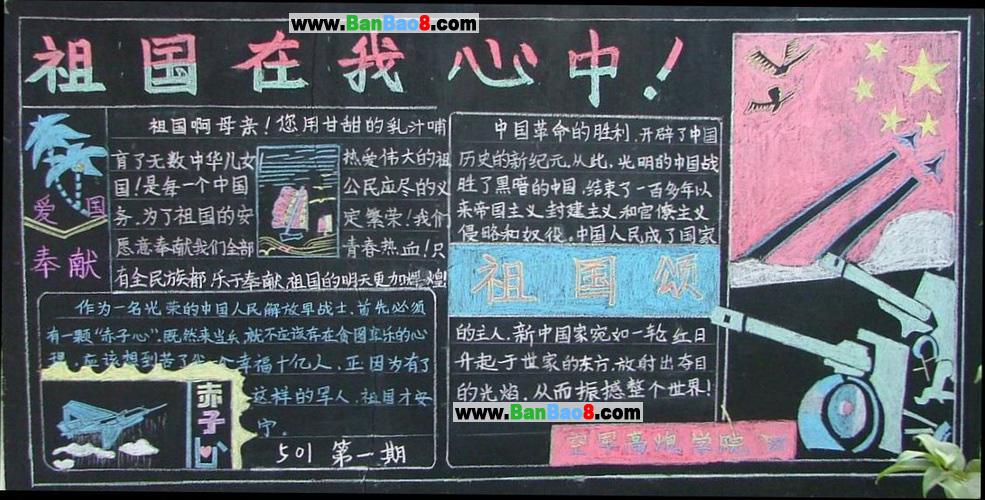 www.BanBao8.com
祖国在我心中!
祖国啊母亲!您用甘甜的乳汁哺
育了无数中华儿女!热爱伟大的祖
国!是每一个中国公民应尽的义
务、为了祖国的安定繁荣!我们
愿意奉献我们全部青春热血!只
有全民族都乐于奉献.祖国的明天更加辉煌!
爱国
奉献
作为一名光荣的中国人民解放军战士,首先必须
有一颗"赤子心".既然来当兵就不应该存在贪图享乐的心
理,应该想到苦了我一个幸福十亿人,正因为有了
这样的军人,祖国才安
宁.
赤子心
501 第一期
中国革命的胜利,开辟了中国
历史的新纪元.从此,光明的中国战
胜了黑暗的中国,结束了一百多年以
来帝国主义,封建主义和官僚主义
侵略和奴役。中国人民成了国家
祖国颂
的主人,新中国家宛如一轮红日
升起于世家的东方,放射出夺目
的光焰,从而振撼整个世界!
www.BanBao8.com
空军高炮学院